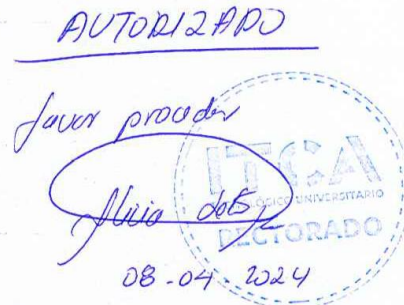 AUTORIZADO
favor proceder
08-04-2024
ITCA
LÓGICO UNIVERSITARIO
RECTORADO